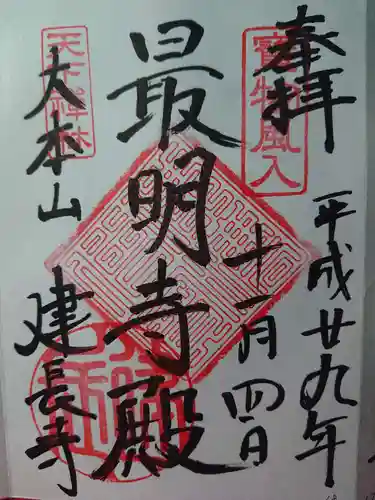 奉拝
寳物風入
平成廿九年
十一月四日
最明寺殿
天下禅林
大本山
建長寺